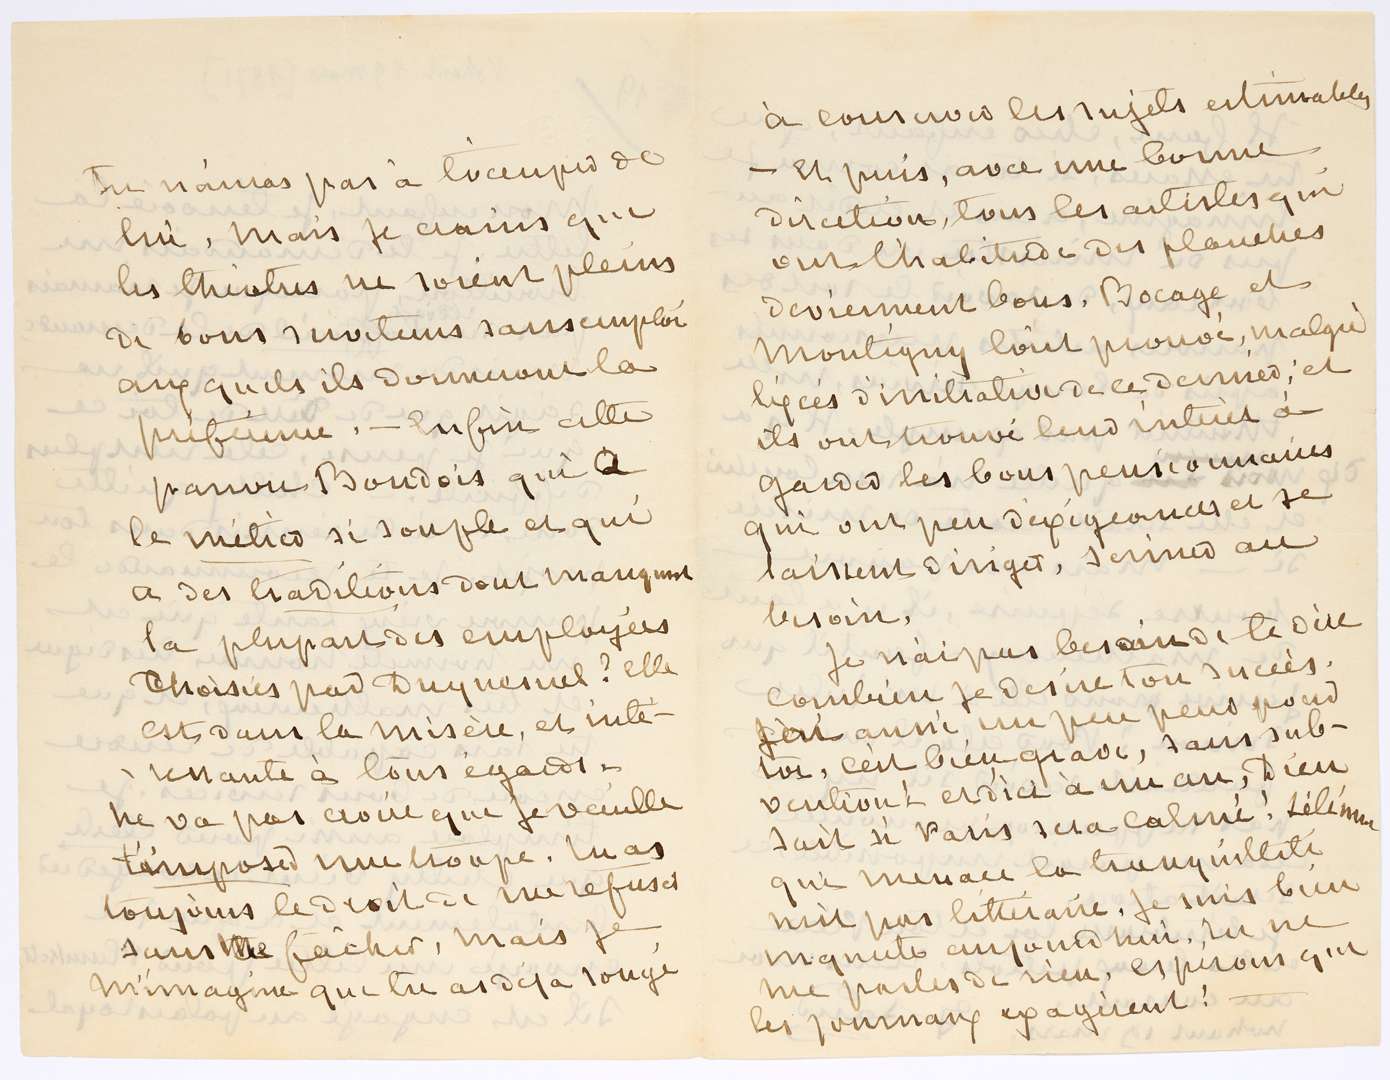 Tu n'auras pas à t'occuper de
lui, mais je crains que
les théâtres ne soient pleins
de bons serviteurs sans emploi
aux quels ils donneront la
préférence. — Enfin cette
pauvre Bondois qui a
le métier si souple et qui
a des traditions dont manquent
la plupart des employées
choisies par Duquesnel? Elle
est dans la misère, et inté-
ressante à tous égards.
Ne va pas croire que je veuille
t'imposer une troupe. Tu as
toujours le droit de me refuser
sans me fâcher, mais je
m'imagine que tu as déjà songé
à conserver les sujets estimables
— Et puis, avec une bonne
direction, tous les artistes qui
ont l'habitude des planches
deviennent bons. Bocage et
Montigny l'ont prouvé, malgré
l'excès d'initiative de ce dernier; et
ils ont trouvé leur intérêt à
garder les bons pensionnaires
qui ont peu d'exigeances et se
laissent diriger, seriner au
besoin.
Je n'ai pas besoin de te dire
combien je desire ton succès.
J'ai aussi un peu peur pour
toi, c'est bien grave, sans sub-
vention! et d'ici à un an, Dieu
sait si Paris sera calmé!
qui menace la tranquillité
n'est pas littéraire. Je suis bien
inquiète aujourd'hui. Tu ne
me parles de rien, espérons que
les journaux exagèrent! —